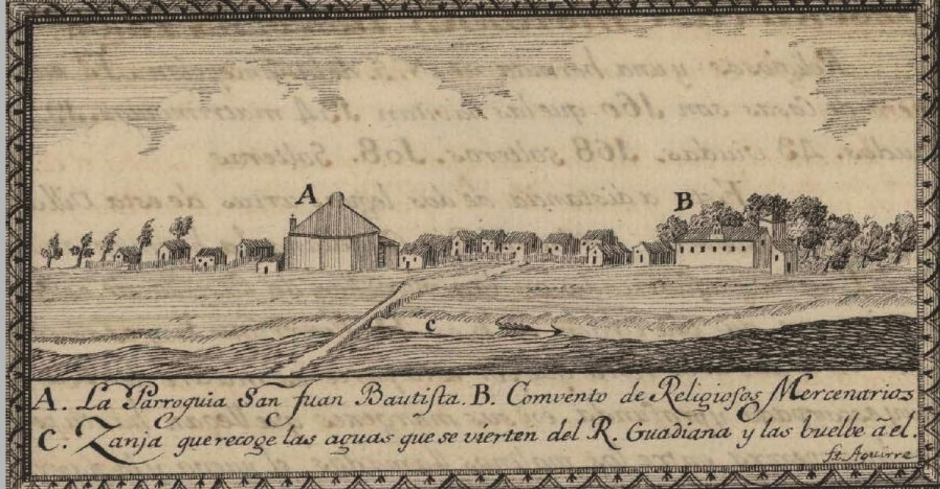 A
B
C
A. La Parroquia San Juan Bautista. B. Comvento de Religiosos Mercenarios
C. Zanja que recoge las aguas que se vierten del R. Guadiana y las buelbe â el.
Aguirre